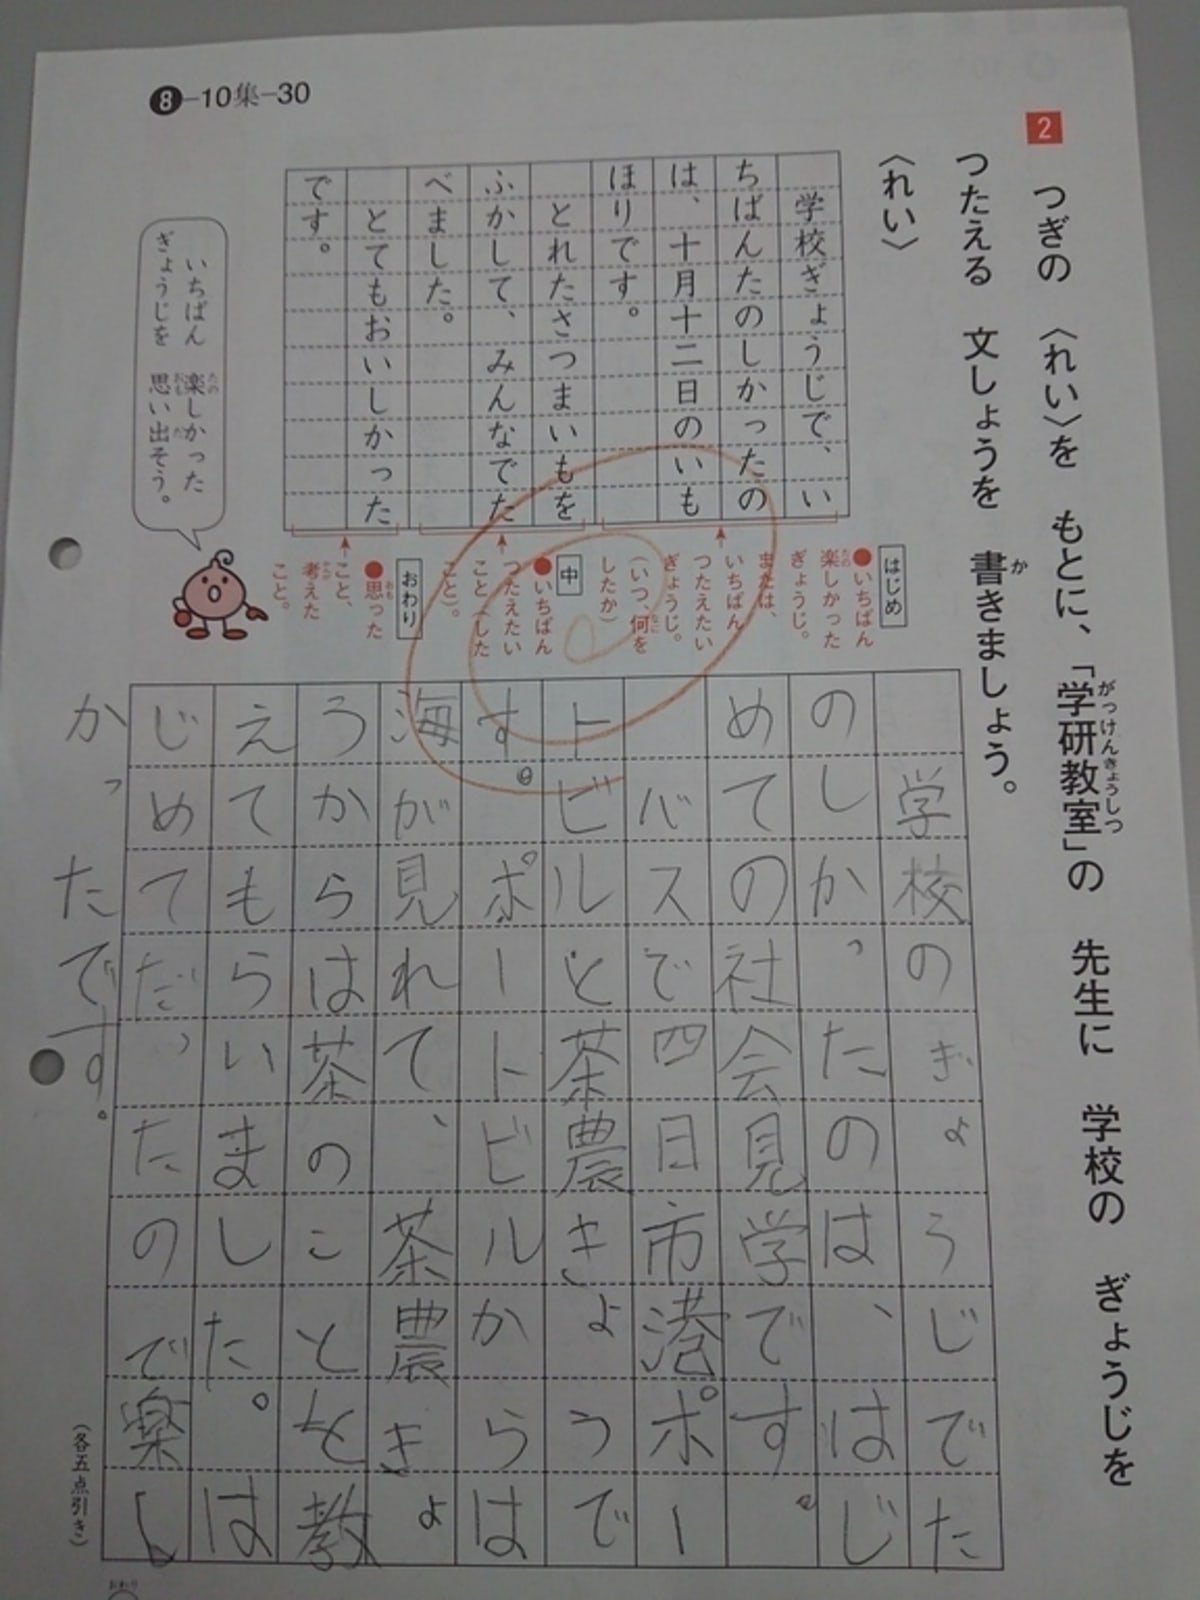 ❽-10集-30
2
つぎの 〈れい〉を もとに、「学研教室」の 先生に 学校の ぎょうじを
がっけんきょうしつ
つたえる 文しょうを 書きましょう。
か
〈れい〉
学校ぎょうじで、い
ちばんたのしかったの
は、十月十二日のいも
ほりです。
とれたさつまいもを
ふかして、みんなでた
べました。
とてもおいしかった
です。
はじめ
●いちばん
楽しかった
たの
ぎょうじ。
または、
いちばん
つたえたい
ぎょうじ。
(いつ、何を
なに
したか)
中
●いちばん
つたえたい
こと(した
こと)。
おわり
●思った
おも
こと、
考えた
かんが
こと。
いちばん 楽しかった
たの
ぎょうじを 思い出そう。
おも だ
学校のぎょうじでた
のしかったのは、はじ
めての社会見学です。
バスで四日市港ポー
トビルと茶農きょうで
す。ポートビルからは
海が見れて、茶農きょ
うからは茶のことを教
えてもらいました。は
じめてだったので楽し
かったです。
(各五点引き)
おわり